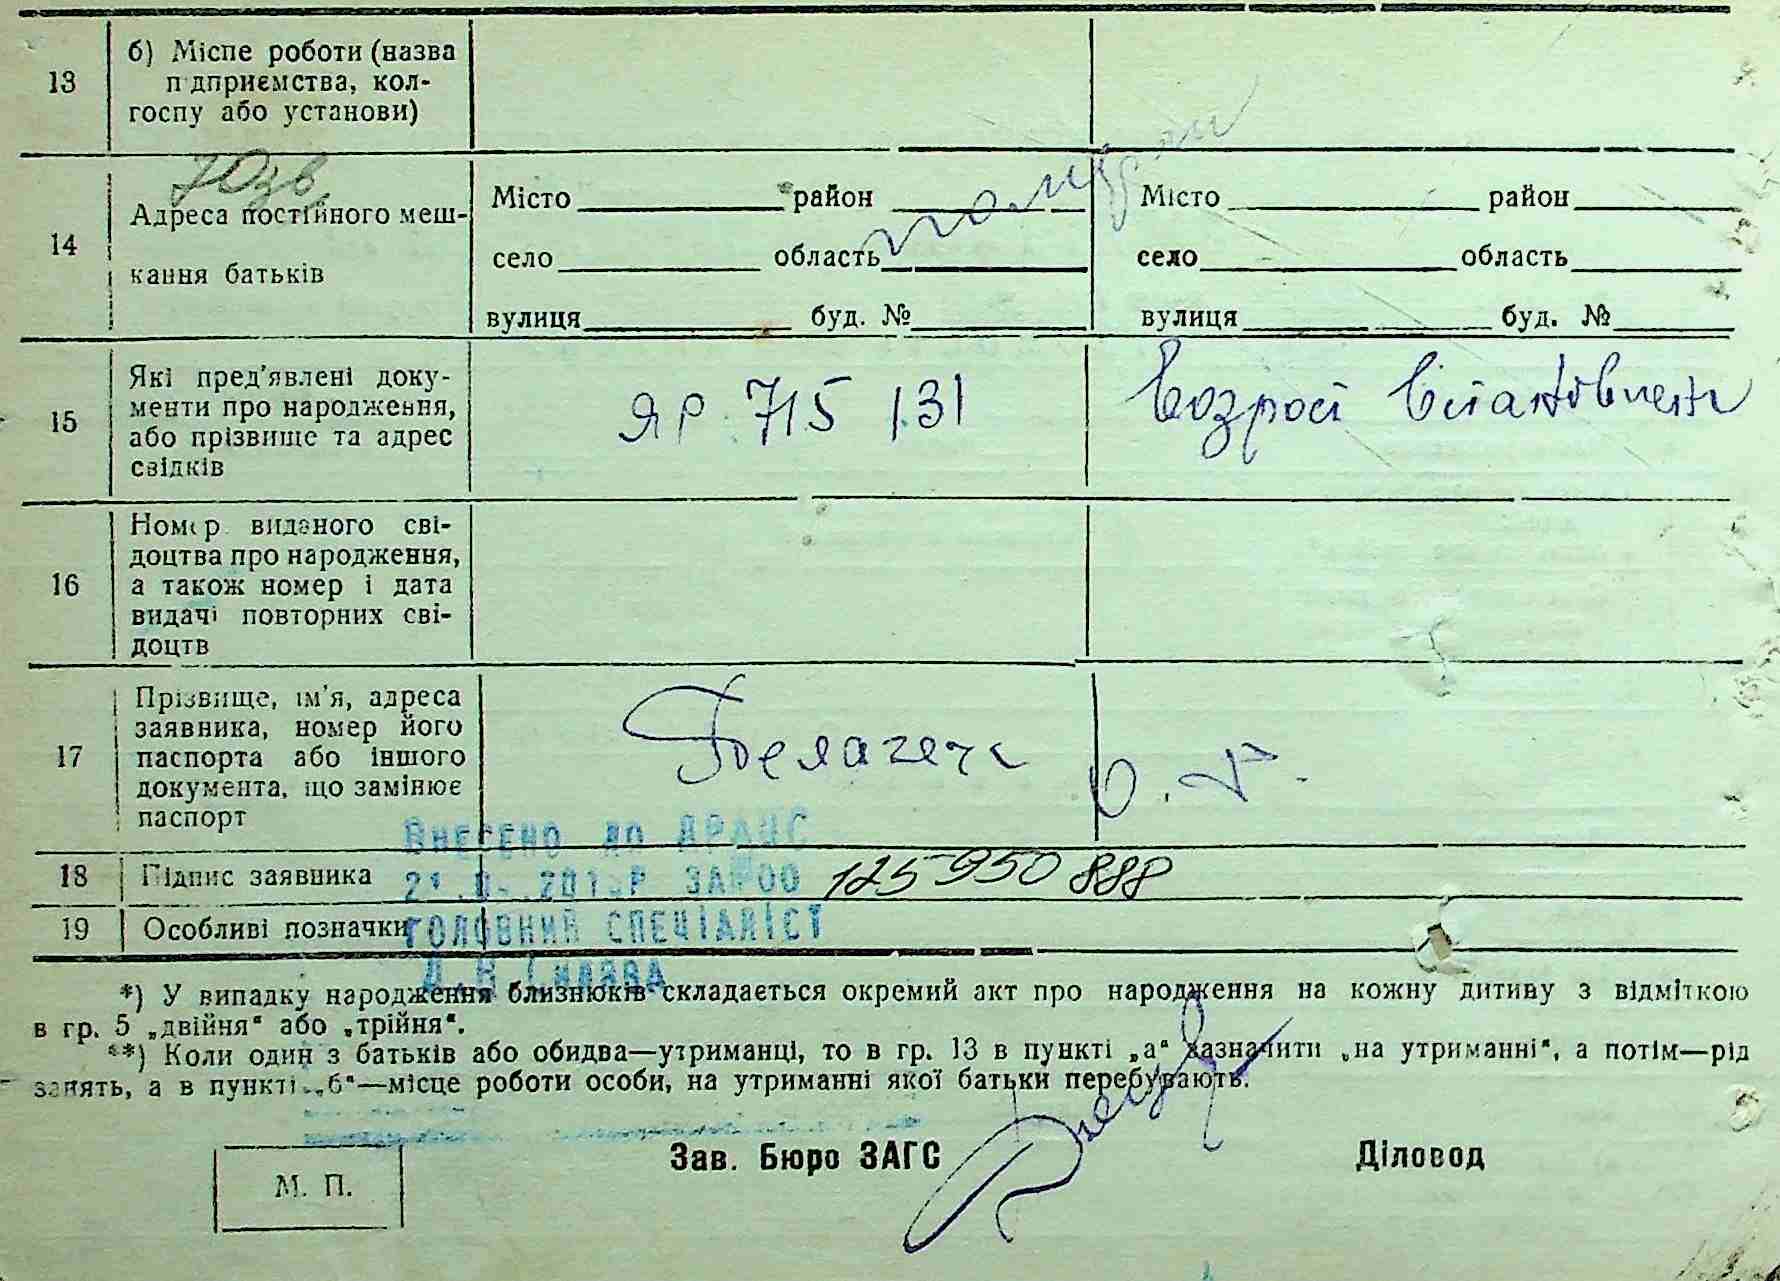 13
б) Міспе роботи (назва
п дприємства, кол-
госпу або установи)
14
Адреса постійного меш-
кання батьків
Місто район
село область
вулиця буд. №
Місто район
село область
вулиця буд. №
15
Які пред’явлені доку-
менти про народження,
або прізвище та адрес
свідків
ЯР 715131
16
Номер виданого сві-
доцтва про народження,
а також номер і дата
видачі повторних сві-
доцтв
17
Прізвище, ім’я, адреса
заявника, номер його
паспорта або іншого
документа, що замінює
паспорт
Внесено до ДРАЦС
18
Підпис заявника
125950888
19
Особливі позначки
головний спеціаліст
*) У випадку народження близнюків складається окремий акт про народження на кожну дитину з відміткою
в гр. 5 „двійня“ або „трійня“.
**) Коли один з батьків або обидва—утриманці, то в гр. 13 в пункті „а“ зазначити „на утриманні“, а потім—рід
занять, а в пункті „б“—місце роботи особи, на утриманні якої батьки перебувають.
М. П.
Зав. Бюро ЗАГС
Діловод